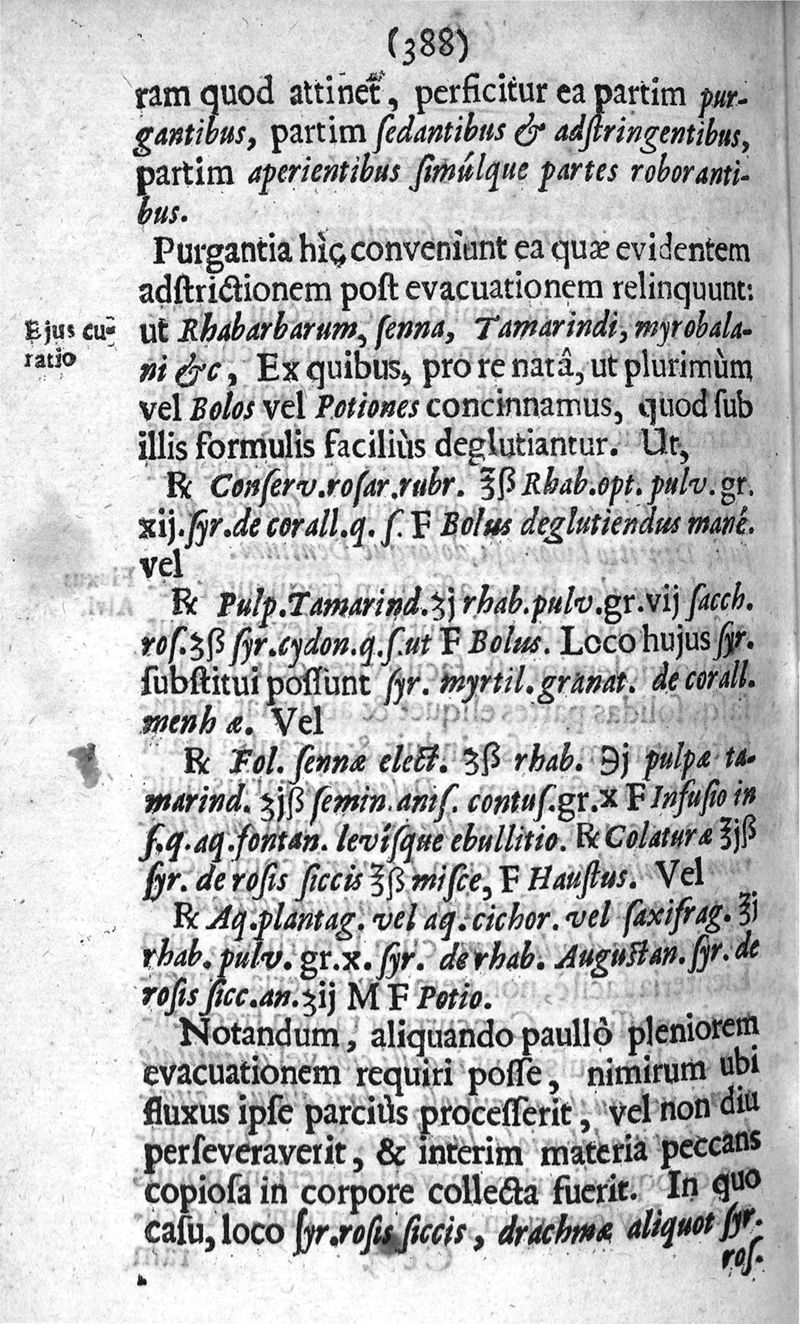 (388)
ram quod attinet, perficitur ea partim pur-
gantibus, partim ſedantibus & adſtringentibus,
partim aperientibus ſimúlque partes roboranti-
bus.
Purgantia hìc conveniunt ea quæ evidentem
adſtrictionem poſt evacuationem relinquunt:
Ejus cu-
ratio
ut Rhabarbarum, ſenna, Tamarindi, myrobala-
ni &c, Ex quibus, pro re natâ, ut plurimùm
vel Bolos vel Potiones concinnamus, quod ſub
illis formulis faciliùs deglutiantur. Ut,
℞ Conſerv.roſar.rubr. ℥ß Rhab.opt. pulv. gr.
xij.ſyr.de corall.q. ſ. F Bolus deglutiendus mané.
vel
℞ Pulp.Tamarind.ʒj rhab.pulv.gr.vij ſacch.
roſ.ʒß ſyr.cydon.q.ſ.ut F Bolus. Loco hujus ſyr.
ſubſtitui poſſunt ſyr. myrtil.granat. de corall.
menh æ. Vel
℞ Fol. ſennæ elect. ʒß rhab. ℈j pulpæ ta-
marind. ʒjß ſemin.aniſ. contuſ.gr.x F Infuſio in
ſ.q.aq.fontan. levíſque ebullitio. ℞ Colaturæ ℥jß
ſyr. de roſis ſiccis ℥ß miſce, F Hauſtus. Vel
℞ Aq.plantag. vel aq. cichor. vel ſaxifrag. ℥j
rhab. pulv. gr.x. ſyr. de rhab. Auguſtan. ſyr. de
roſis ſicc.an.ʒij M F Potio.
Notandum, aliquando paullò pleniorem
evacuationem requiri poſſe, nimirum ubi
fluxus ipſe parciùs proceſſerit, vel non diu
perſeveraverit, & interim materia peccans
copioſa in corpore collecta fuerit. In quo
caſu, loco ſyr.roſis ſiccis, drachmæ aliquot ſyr.
roſ.